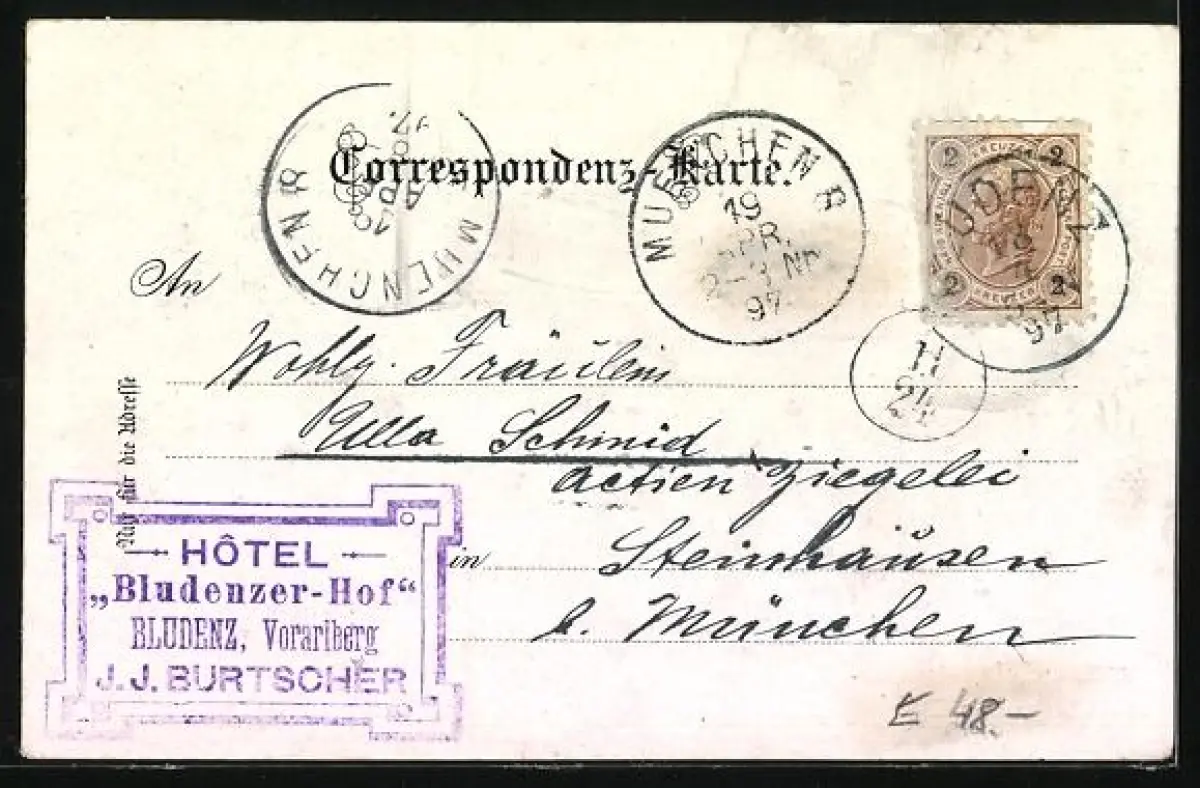 Correspondenz-Karte.
MUENCHEN 8
19
APR.
97.
MUENCHEN 8
19
APR.
2-3 NM
97
2 KREUZER 2
2 KREUZER 2
UDENZ
18
4
97
11
24
An
Wohlg. Fräulein
Ulla Schmid
Actien Ziegelei
in Steinhausen
b. München
Nur für die Adresse
HÔTEL
„Bludenzer-Hof“
BLUDENZ, Vorarlberg
J. J. BURTSCHER
E 48.-